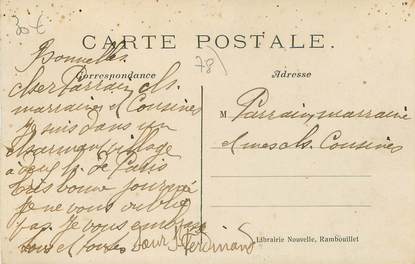 30€
78)
Bonnelles
CARTE POSTALE.
Correspondance
Cher Parrain, ch.
marraine et Cousines
Je suis dans un
charmant village
à une h. de Paris
très bonne journée
Je ne vous oublie
pas. Je vous embrasse
tous et toutes Soeur St Ferdinand
Adresse
M Parrain, marraine
et mes ch. Cousines
Librairie Nouvelle, Rambouillet